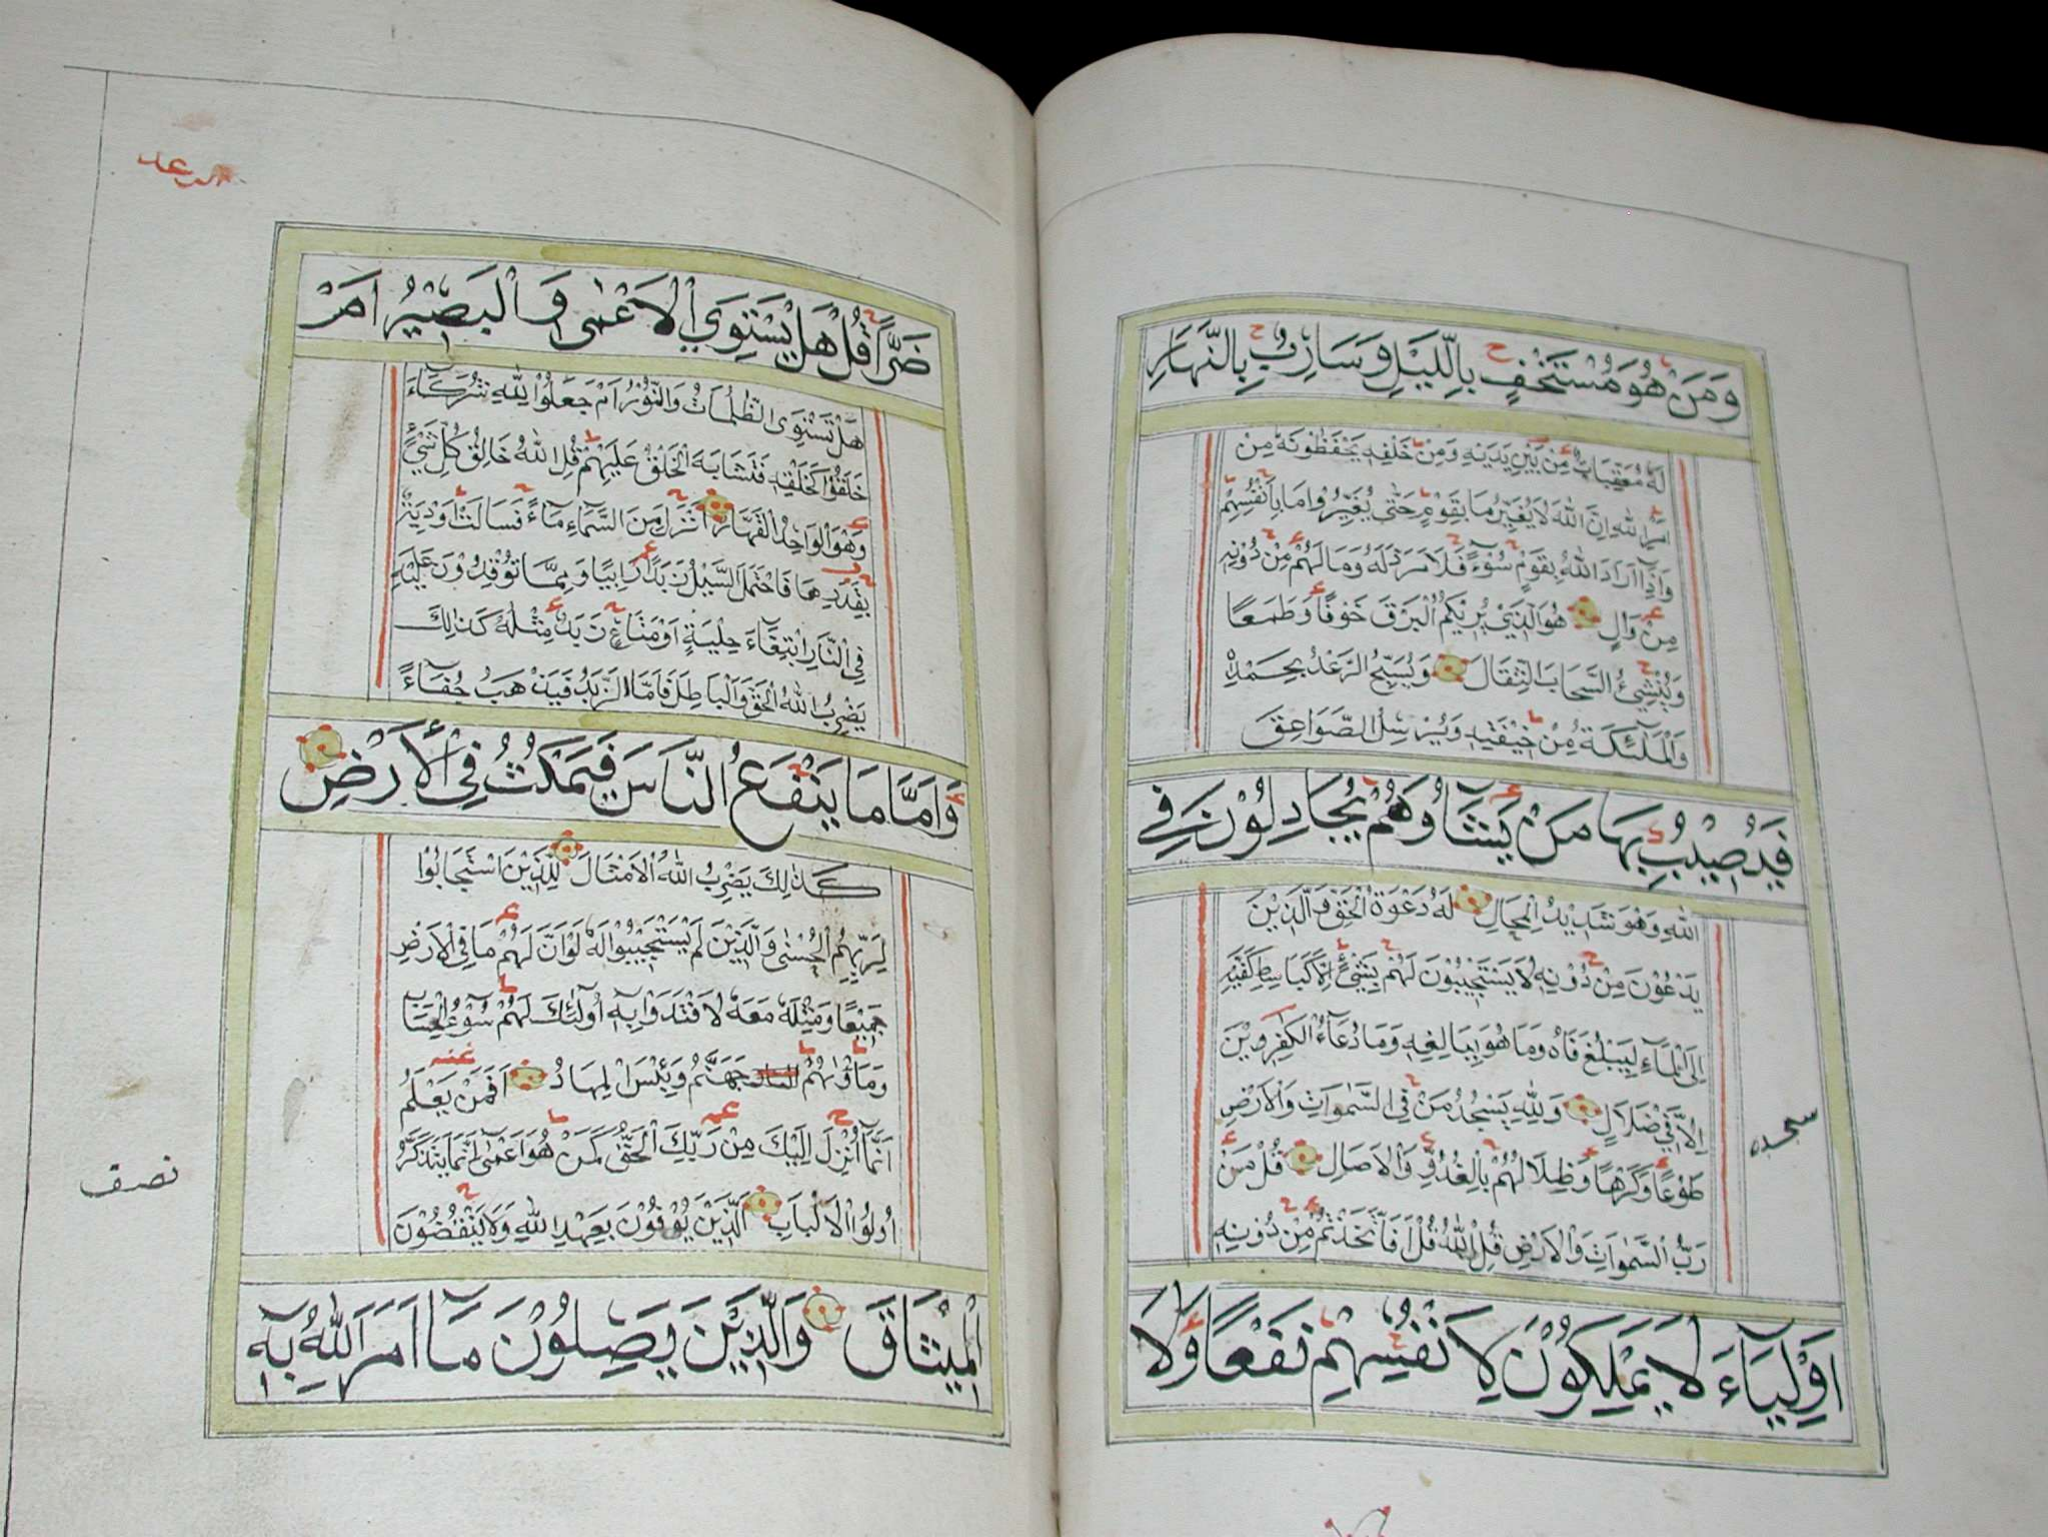 وَمَنْ هُوَ مُسْتَخْفٍ بِاللَّيْلِ وَسَارِبٌ بِالنَّهَارِ
لَهُ مُعَقِّبَاتٌ مِنْ بَيْنِ يَدَيْهِ وَمِنْ خَلْفِهِ يَحْفَظُونَهُ مِنْ
اَمْرِ اللهِ اِنَّ اللهَ لَا يُغَيِّرُ مَا بِقَوْمٍ حَتَّى يُغَيِّرُوا مَا بِاَنْفُسِهِمْ
وَاِذَا اَرَادَ اللهُ بِقَوْمٍ سُوْءً فَلَا مَرَدَّ لَهُ وَمَا لَهُمْ مِنْ دُوْنِهِ
مِنْ وَالٍ هُوَ الَّذِيْ يُرِيْكُمُ الْبَرْقَ خَوْفًا وَطَمَعًا
وَيُنْشِئُ السَّحَابَ الثِّقَالَ وَيُسَبِّحُ الرَّعْدُ بِحَمْدِهِ
وَالْمَلٰئِكَةُ مِنْ خِيْفَتِهِ وَيُرْسِلُ الصَّوَاعِقَ
فَيُصِيْبُ بِهَا مَنْ يَشَآءُ وَهُمْ يُجَادِلُوْنَ فِي
اللهِ وَهُوَ شَدِيْدُ الْمِحَالِ لَهُ دَعْوَةُ الْحَقِّ وَالَّذِيْنَ
يَدْعُوْنَ مِنْ دُوْنِهِ لَا يَسْتَجِيْبُوْنَ لَهُمْ بِشَيْءٍ اِلَّا كَبَاسِطِ كَفَّيْهِ
اِلَى الْمَآءِ لِيَبْلُغَ فَاهُ وَمَا هُوَ بِبَالِغِهِ وَمَا دُعَآءُ الْكٰفِرِيْنَ
اِلَّا فِيْ ضَلَالٍ وَلِلّٰهِ يَسْجُدُ مَنْ فِي السَّمٰوَاتِ وَالْاَرْضِ
سجده
طَوْعًا وَكَرْهًا وَظِلَالُهُمْ بِالْغُدُوِّ وَالْاٰصَالِ قُلْ مَنْ
رَبُّ السَّمٰوَاتِ وَالْاَرْضِ قُلِ اللهُ قُلْ اَفَاتَّخَذْتُمْ مِنْ دُوْنِهِ
اَوْلِيَآءَ لَا يَمْلِكُوْنَ لِاَنْفُسِهِمْ نَفْعًا وَلَا
الرعد
ضَرًّا قُلْ هَلْ يَسْتَوِي الْاَعْمٰى وَالْبَصِيْرُ اَمْ
هَلْ تَسْتَوِى الظُّلُمَاتُ وَالنُّوْرُ اَمْ جَعَلُوْا لِلّٰهِ شُرَكَآءَ
خَلَقُوْا كَخَلْقِهِ فَتَشَابَهَ الْخَلْقُ عَلَيْهِمْ قُلِ اللهُ خَالِقُ كُلِّ شَيْءٍ
وَهُوَ الْوَاحِدُ الْقَهَّارُ اَنْزَلَ مِنَ السَّمَآءِ مَآءً فَسَالَتْ اَوْدِيَةٌ
بِقَدَرِهَا فَاحْتَمَلَ السَّيْلُ زَبَدًا رَابِيًا وَمِمَّا تُوْقِدُوْنَ عَلَيْهِ
فِي النَّارِ ابْتِغَآءَ حِلْيَةٍ اَوْ مَتَاعٍ زَبَدٌ مِثْلُهُ كَذٰلِكَ
يَضْرِبُ اللهُ الْحَقَّ وَالْبَاطِلَ فَاَمَّا الزَّبَدُ فَيَذْهَبُ جُفَآءً
وَاَمَّا مَا يَنْفَعُ النَّاسَ فَيَمْكُثُ فِي الْاَرْضِ
كَذٰلِكَ يَضْرِبُ اللهُ الْاَمْثَالَ لِلَّذِيْنَ اسْتَجَابُوْا
لِرَبِّهِمُ الْحُسْنٰى وَالَّذِيْنَ لَمْ يَسْتَجِيْبُوْا لَهُ لَوْ اَنَّ لَهُمْ مَا فِي الْاَرْضِ
جَمِيْعًا وَمِثْلَهُ مَعَهُ لَافْتَدَوْا بِهِ اُولٰئِكَ لَهُمْ سُوْءُ الْحِسَابِ
وَمَاْوٰىهُمْ جَهَنَّمُ وَبِئْسَ الْمِهَادُ اَفَمَنْ يَعْلَمُ
اَنَّمَا اُنْزِلَ اِلَيْكَ مِنْ رَبِّكَ الْحَقُّ كَمَنْ هُوَ اَعْمٰى اِنَّمَا يَتَذَكَّرُ
نصف
اُولُوا الْاَلْبَابِ الَّذِيْنَ يُوْفُوْنَ بِعَهْدِ اللهِ وَلَا يَنْقُضُوْنَ
الْمِيْثَاقَ وَالَّذِيْنَ يَصِلُوْنَ مَآ اَمَرَ اللهُ بِهِ